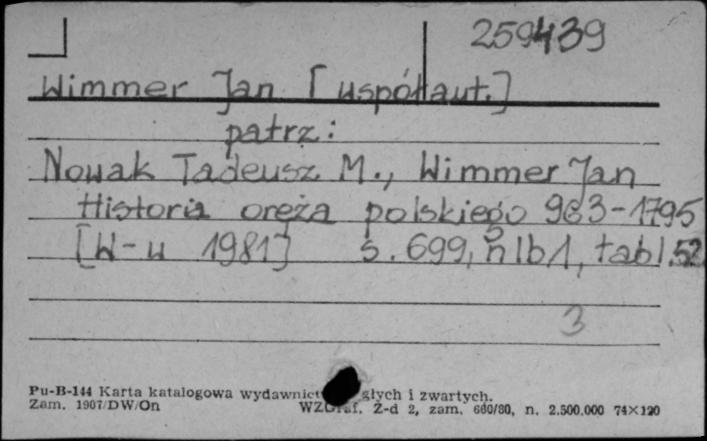 259439
Wimmer Jan [współaut.]
patrz:
Nowak Tadeusz M., Wimmer Jan
Historia oręża polskiego 963-1795
[W-w 1981] s. 699, nlb1, tabl. 52
3
Pu-B-144 Karta katalogowa głych i zwartych.
Zam. 1907/DW/On WZGraf. Z-d 2, zam. 660/80, n. 2.500.000 74×120